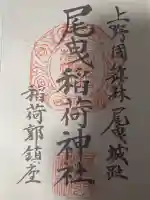 上野国舘林尾曳城跡
尾曳稲荷神社
稲荷郭鎮座